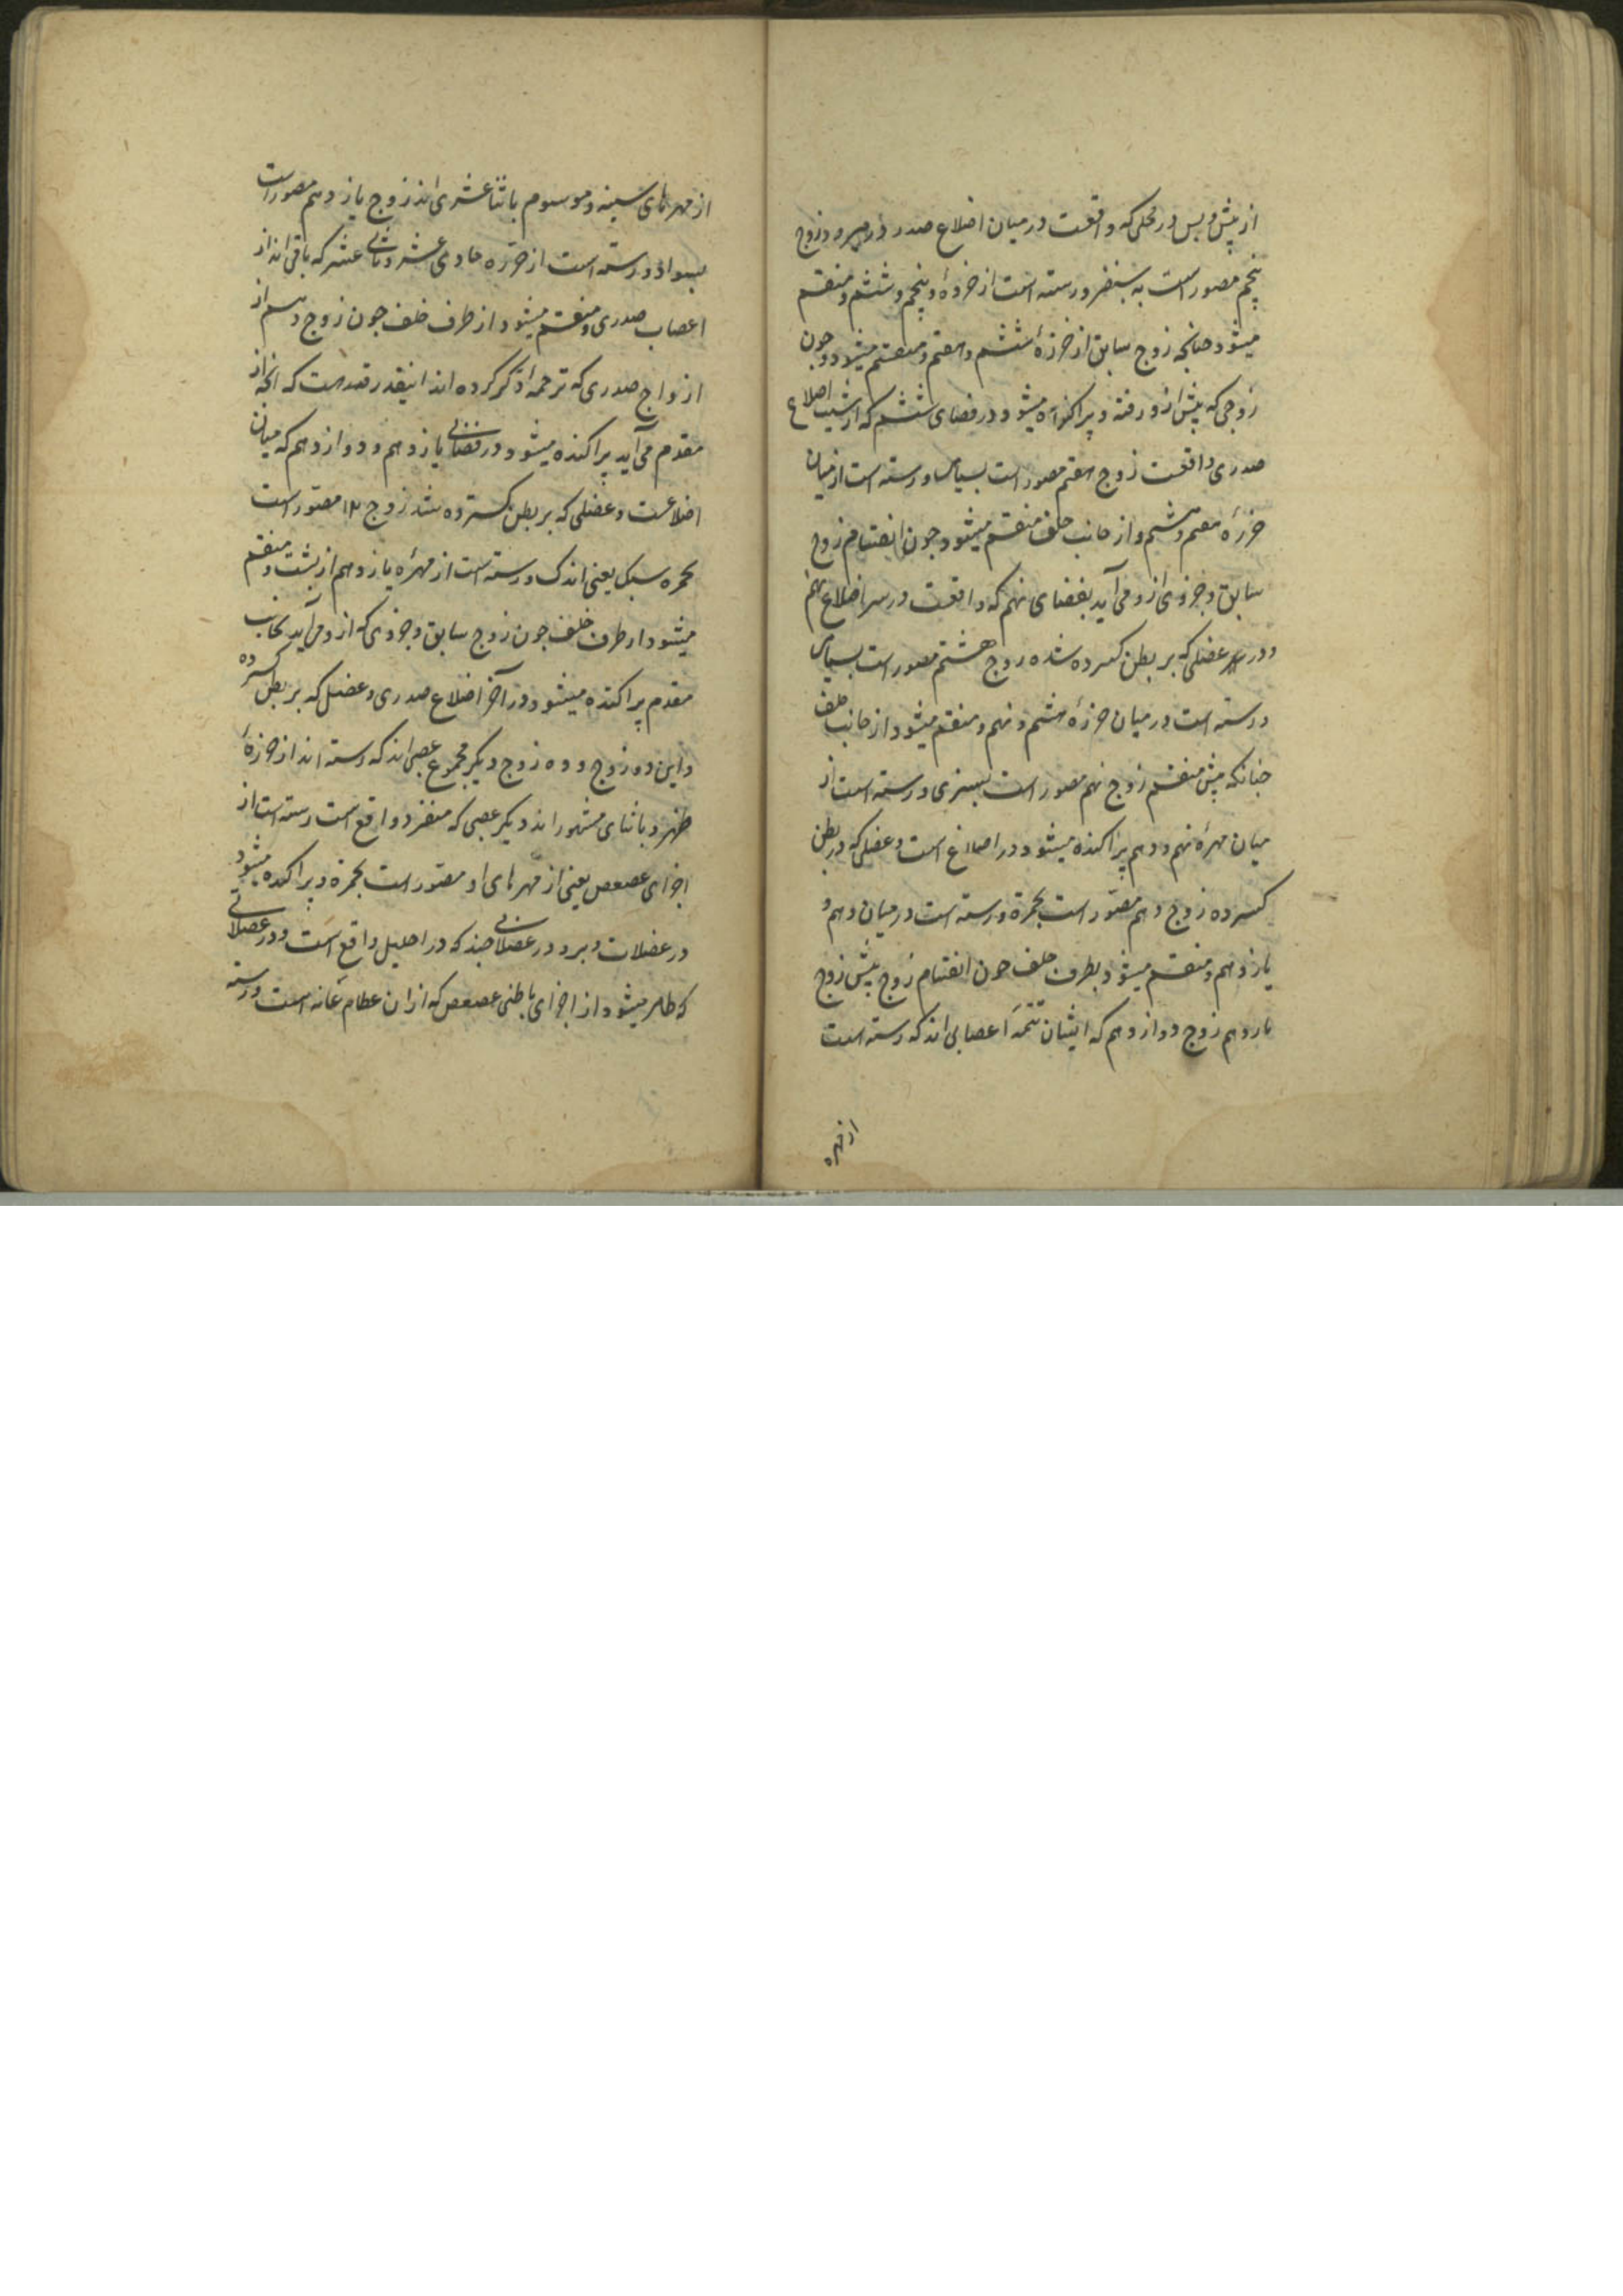 از پیش و پس در محلی که واقعست در میان اضلاع صدر زوج
پنجم مصور است به بنفش و رسته است از خرزهٔ و پنجم و ششم و منقسم
میشود چنانچه زوج سابق از خرزهٔ ششم و هفتم و منقسم میشود و چون
زوجی که پیش ازو رفته و پراکنده میشود در فضای ششم که از اضلاع
صدری واقعست زوج هفتم مصور است بسیاه و رسته است از میان
خرزهٔ هفتم و هشتم و از جانب خلف منقسم میشود چون انقسام زوج
سابق و جزوی ازو می آید بفضای نهم که واقعست در سر اضلاع نهم
و در عضلی که بر بطن کسرده شده زوج هشتم مصور است بسیاه
و رسته است در میان خرزهٔ هشتم و نهم و منقسم میشود از جانب خلف
چنانکه پیش منقسم زوج نهم مصور است بسبزی و رسته است از
میان مهرهٔ نهم و دهم پراکنده میشود در اضلاع است و عضلی که در بطن
کسرده زوج دهم مصور است بحمرة و رسته است در میان دهم و
یازدهم و منقسم میشود بطرف خلف چون انقسام زوج پیش زوج
یازدهم زوج دوازدهم که ایشان تتمهٔ اعصابی اند که رسته است
از مهره
از مهرهای سینه و موسوم باثنا عشری اند زوج یازدهم مصور است
بسواد و رسته است از خرزه حادی عشر و ثانی عشر که باقی اند از
اعصاب صدری و منقسم میشود از طرف خلف چون زوج دهم از
ازواج صدری که ترجمه او ذکر کرده اند اینقدر هست که آنچه از
مقدم می آید پراکنده میشود در فضای یازدهم و دوازدهم که میان
اضلاعست و عضلی که بر بطن گسترده شد زوج ۱۲ مصور است
بحمره سبک یعنی اندک و رسته است از مهرهٔ یازدهم از پشت و منقسم
میشود از طرف خلف چون زوج سابق و جزوی که ازو می آید بجانب
مقدم پراکنده میشود در آخر اضلاع صدری و عضلی که بر بطن کسرده
و این دو زوج و ده زوج دیگر مجموع عصبی اند که رسته اند از خرزهٔ
ظهر و باثنای مشهور اند دیگر عصبی که منفرد واقع است رسته است از
اجزای عصعص یعنی از مهرهای او مصور است بحمرة و پراکنده میشود
در عضلات دبر و در عضلاتی چند که در احلیل واقع است و در عضلاتی
که ظاهر میشود از اجزای باطنی عصعص که از ان عظام عانه است و رسته